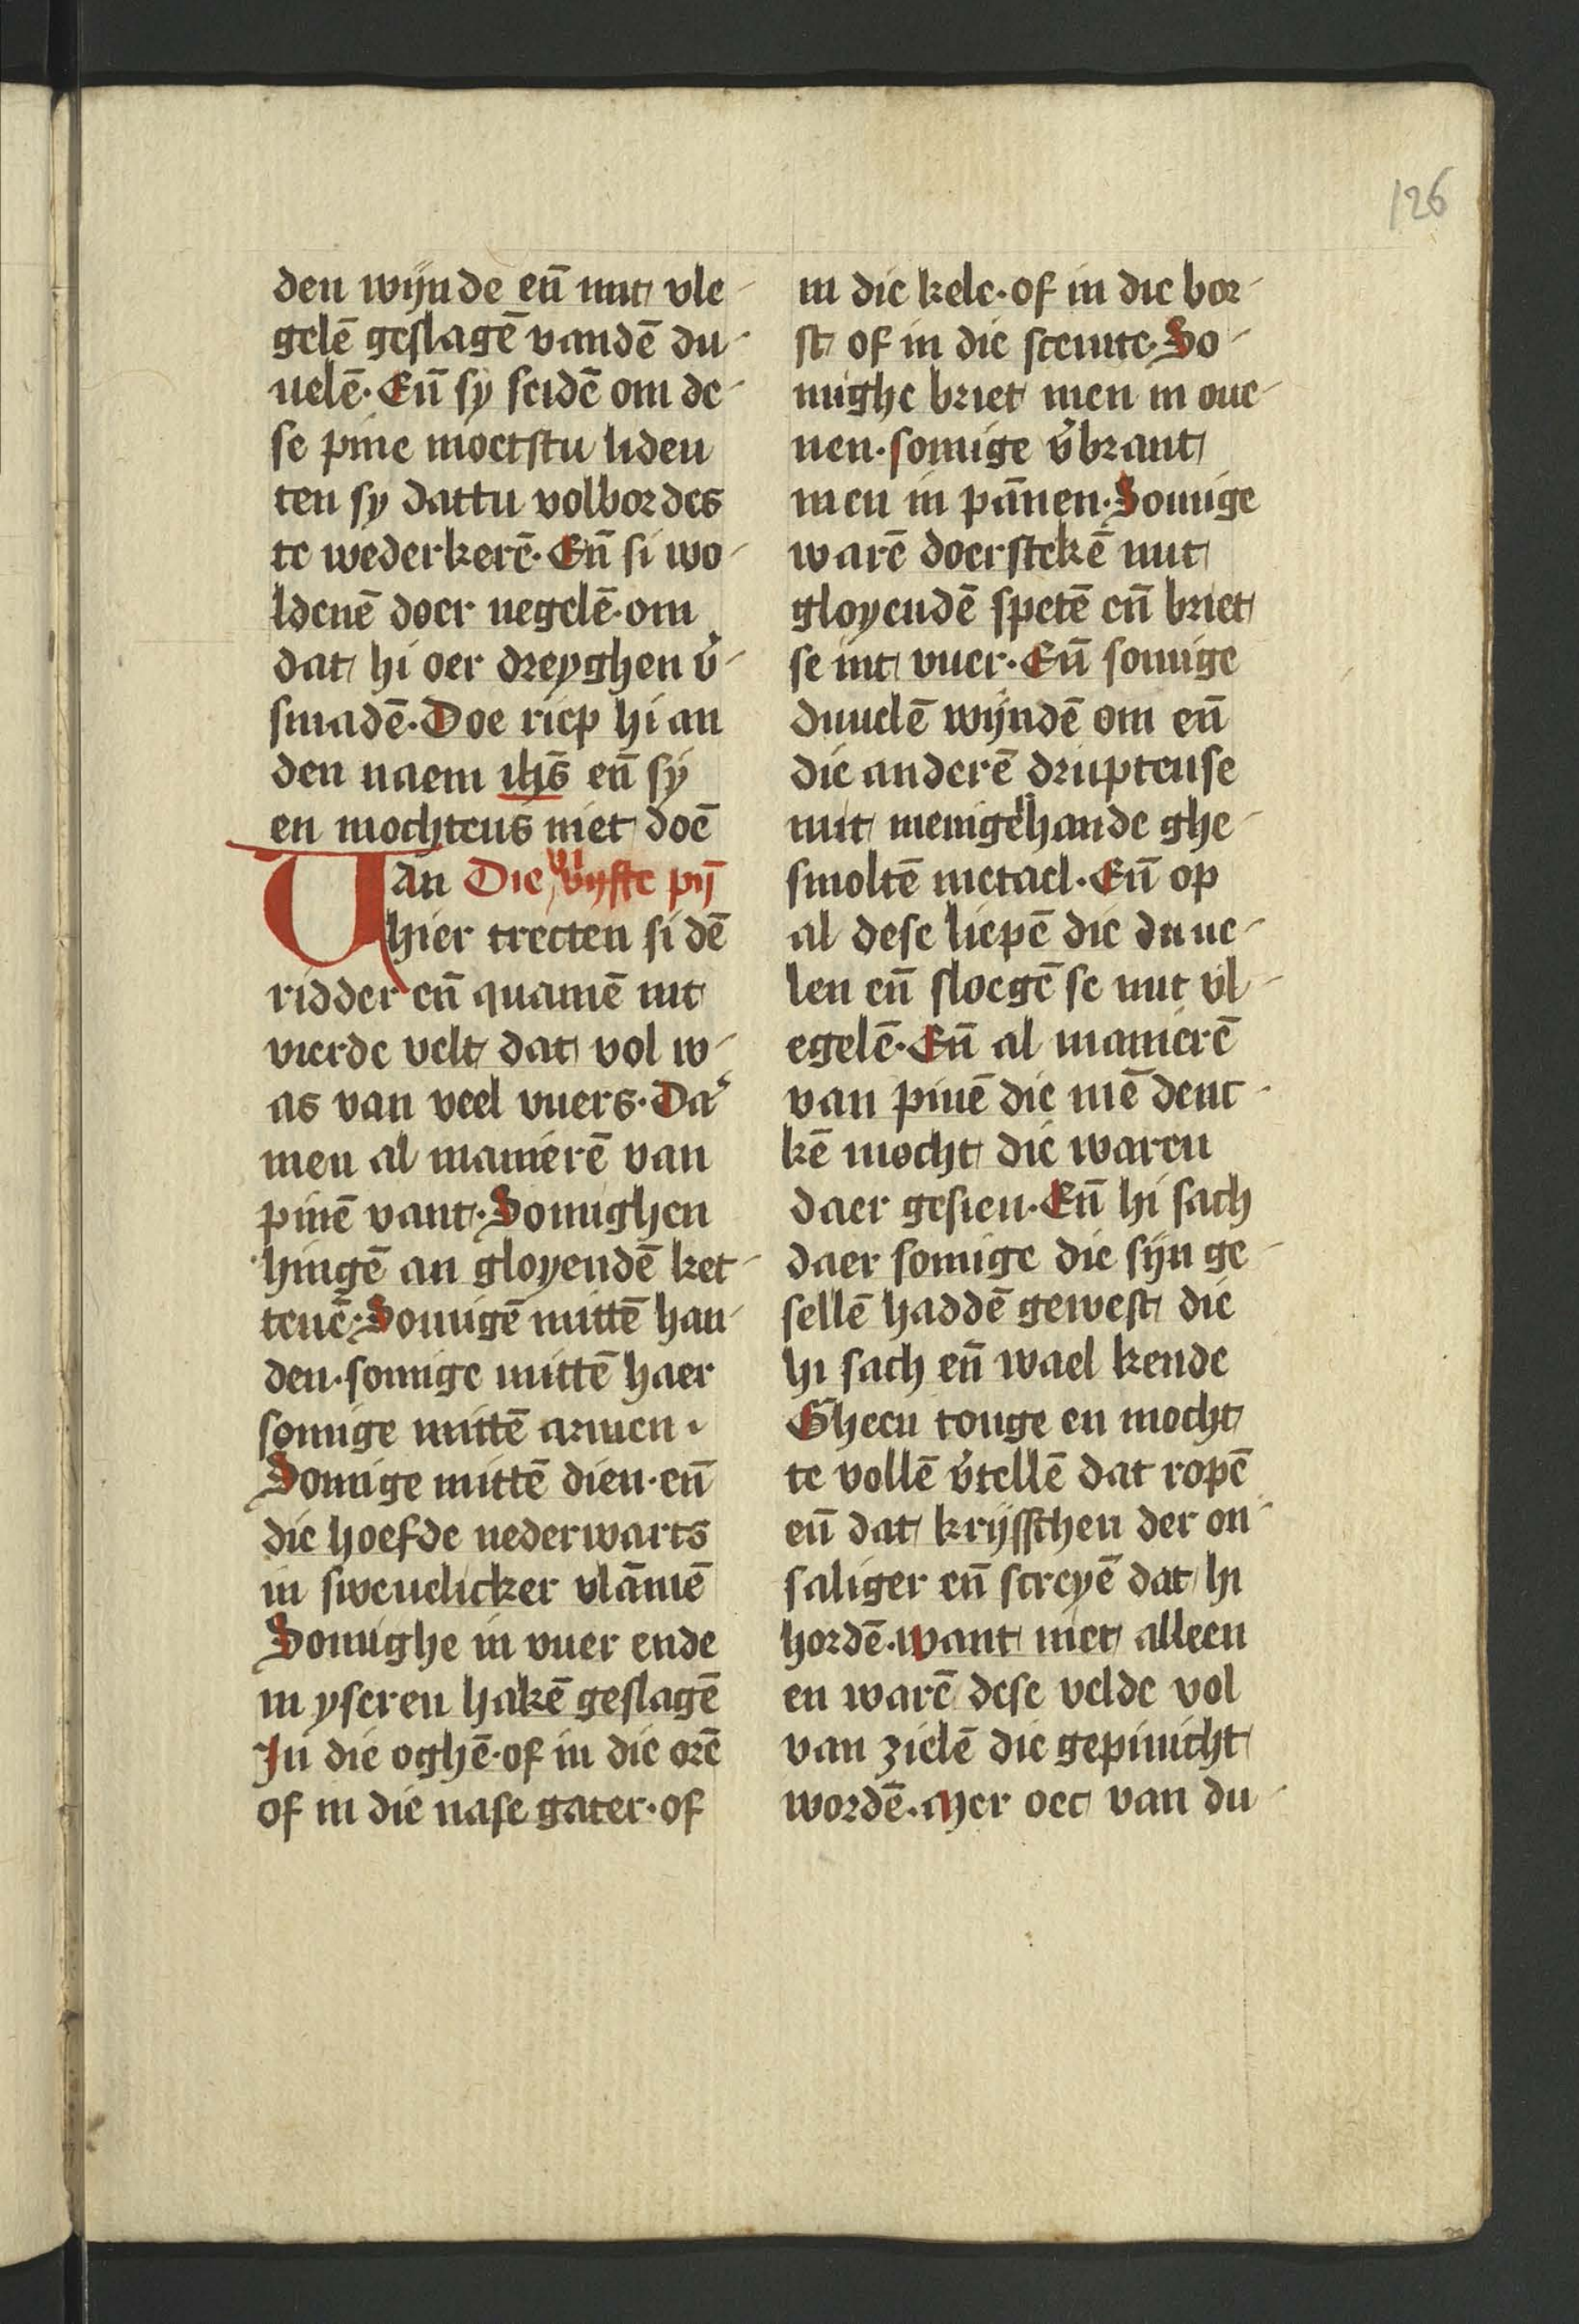 126
den wijnde eñ mit vle-
gelē geslagē vandē du-
uelē. Eñ sy seidē om de-
se pine moetstu liden
ten sy dattu volbordes
te wederkerē. Eñ si wo-
ldenē doer negelē. om
dat hi oer dreyghen v̉-
smadē. Doe riep hi an
den naem ihs̄ eñ sy
en mochtens niet doē
Van Die vijfte pij̄
hier trecten si dē
ridder eñ quamē int
vierde velt dat vol w-
as van veel vuers. Da͛
men al manierē van
pinē vant. Somighen
hingē an gloyendē ket-
tenē. Somigē mittē han-
den. somige mittē haer
somige mittē armen.
Somige mittē dien. eñ
die hoefde nederwarts
in sweuelicker vlāmē
Somighe in vuer ende
in yseren hakē geslagē
In die oghē. of in die orē
of in die nase gater. of
in die kele. of in die bor-
st of in die scemte. So-
mighe briet men in oue-
nen. somige v̉brant
men in pānen. Somige
warē doerstekē mit
gloyendē spetē eñ briet
se int vuer. Eñ somige
duuelē wijndē om eñ
die anderē druptense
mit menigerhande ghe-
smoltē metael. Eñ op
al dese liepē die duue-
len eñ sloegē se mit vl-
egelē. Eñ al manierē
van pinē die mē denc-
kē mocht die waren
daer gesien. Eñ hi sach
daer somige die sijn ge-
sellē haddē gewest die
hi sach eñ wael kende
Gheen tonge en mocht
te vollē v̉tellē dat ropē
eñ dat krijsschen der on-
saliger eñ screyē dat hi
hordē. want niet alleen
en warē dese velde vol
van zielē die gepinicht
wordē. Mer oec van du-